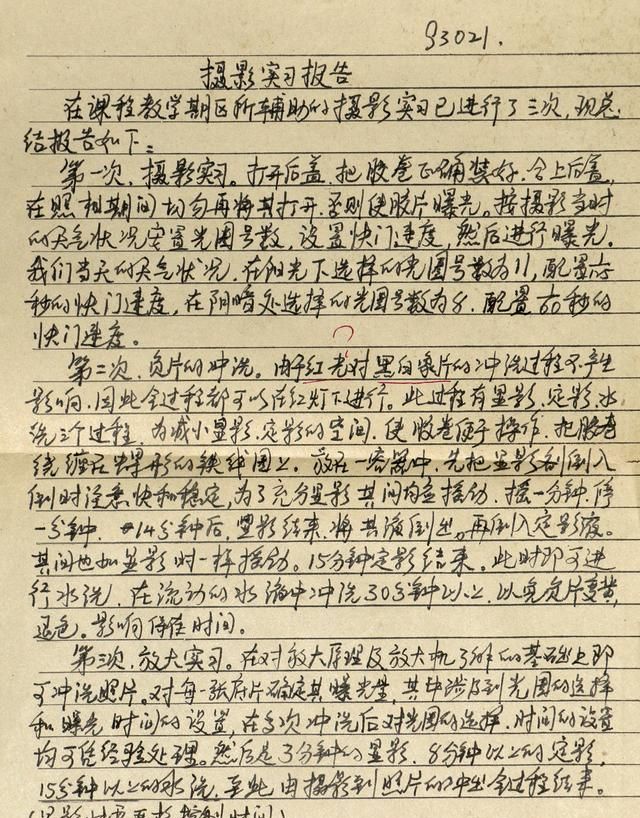 93021.
摄影实习报告
在课程教学期区所辅助的摄影实习已进行了三次,现总
结报告如下:
第一次,摄影实习。打开后盖,把胶卷正确装好,合上后盖,
在照相期间均勿再将其打开,否则使胶片曝光。按摄影当时
的天气状况安置光圈号数,设置快门速度,然后进行曝光。
我们当天的天气状况,在阳光下选择的光圈号数为11,配置
秒的快门速度,在阴暗处选择的光圈号数为8,配置1/60秒的
快门速度。
第二次,负片的冲洗。由于红光对黑白负片的冲洗过程不产生
影响,因此全过程都可以在红灯下进行。此过程有显影、定影、水
洗三个过程,为减小显影、定影的空间,使胶卷便于操作,把胶卷
绕缠在螺形的铁线圈上。放在一容器中,先把显影剂倒入
倒时注意快和稳定,为了充分显影其间均宜摇动,摇一分钟,停
一分钟,14分钟后,显影结束,将其液倒出。再倒入定影液。
其间也如显影时一样摇动。15分钟定影结束。此时即可进
行水洗,在流动的水中冲洗30分钟以上,以免负片变黄,
退色。影响保存时间。
第三次,放大实习。在对放大原理及放大机了解的基础上即
可冲洗照片。对每一张底片确定其曝光量,其中涉及到光圈的选择
和曝光时间的设置,在多次冲洗后对光圈的选择,时间的设置
均可凭经验处理。然后是3分钟的显影,8分钟以上的定影,
15分钟以上的水洗,至此由摄影到照片的冲出全过程结束。